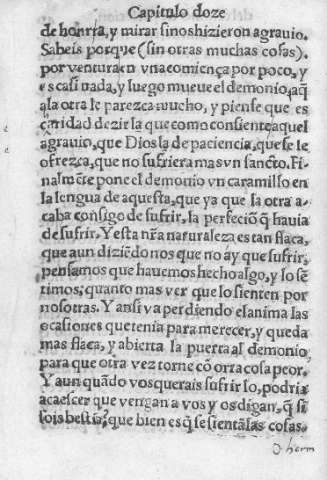 Capitulo doze
de honrra, y mirar si nos hizieron agrauio.
Sabeis porque (sin otras muchas cosas).
por ventura en vna comiença por poco, y
es casi nada, y luego mueue el demonio, aq̃
a la otra le parezca mucho, y piense que es
caridad dezir la que como consiente aquel
agrauio, que Dios la de paciencia, que se le
ofrezca, que no sufriera mas vn sancto. Fi-
nalmẽte pone el demonio vn caramillo en
la lengua de aquesta, que ya que la otra a-
caba consigo de sufrir, la perfeciõ q̃ hauia
de sufrir. Y esta nr̃a naturaleza es tan flaca,
que aun diziẽdo nos que no ay que sufrir,
pensamos que hauemos hecho algo, y lo sẽ
timos; quanto mas ver que lo sienten por
nosotras. Y ansi va perdiendo el anima las
ocasiones que tenia para merecer, y queda
mas flaca, y abierta la puerta al demonio,
para que otra vez torne cõ otra cosa peor.
Y aun quãdo vos querais sufrir lo, podria
acaescer que vengan a vos y os digan, q̃ si
sois bestia? que bien es q̃ se sientã las cosas.
O herm